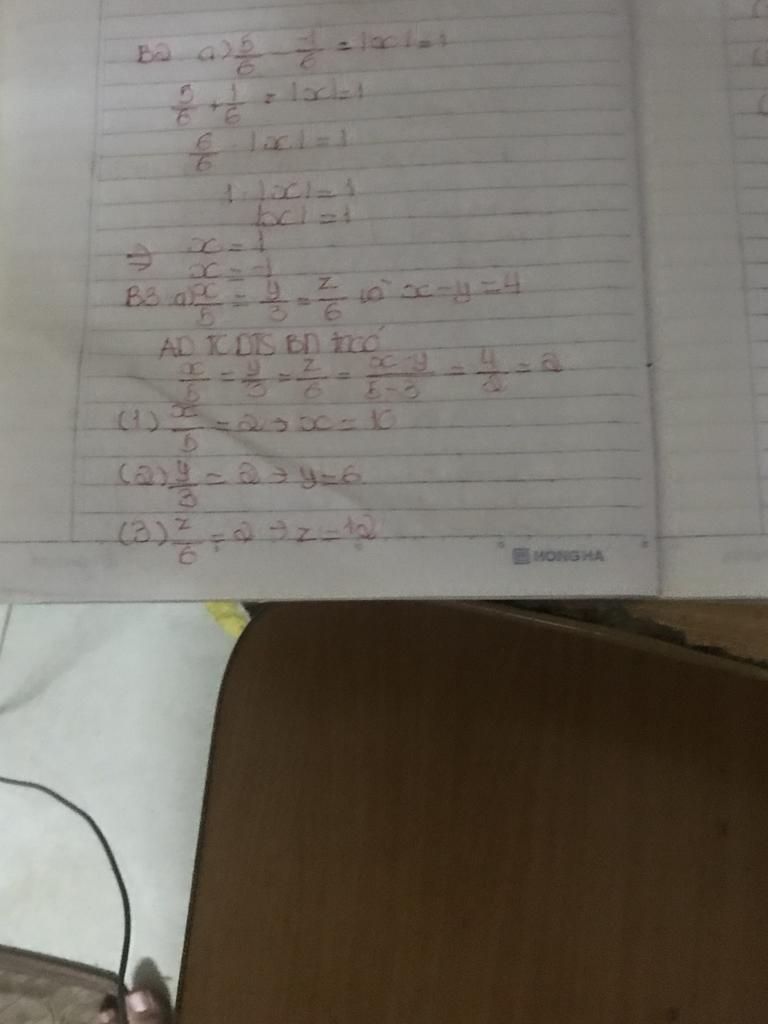 B2 a) 5/6 - -1/6 = |x| = 1
5/6 + 1/6 = |x| = 1
6/6 . |x| = 1
1. |x| = 1
|x| = 1
⇒ x = 1
x = -1
B3 a) x/5 = y/3 = z/6 và x - y = 4
AD TCDTSBN ta có
x/5 = y/3 = z/6 = x-y/5-3 = 4/2 = 2
(1) x/5 = 2 → x = 10
(2) y/3 = 2 → y = 6
(3) z/6 = 2 → z = 12
HONG HA